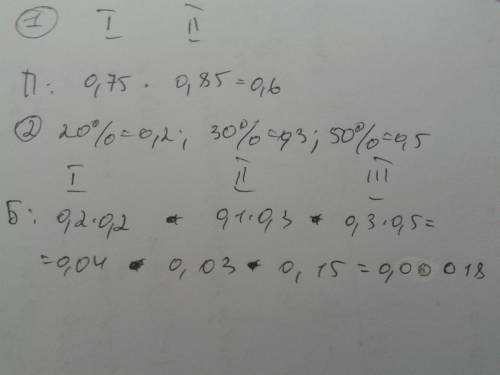 ① I II
П: 0,75 · 0,85=0,6
② 20%=0,2; 30%=0,3; 50%=0,5
I II III
Б: 0,2·0,2 * 0,1·0,3 * 0,3·0,5=
=0,04 * 0,03 * 0,15=0,00018